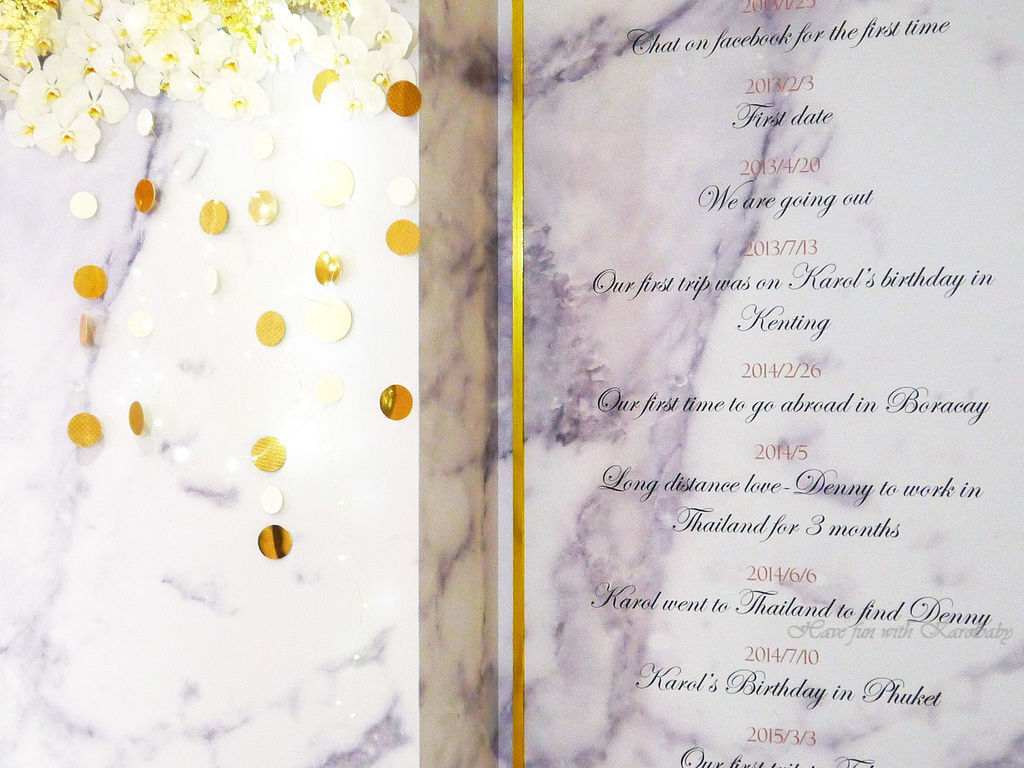 2013/1/23
Chat on facebook for the first time
2013/2/3
First date
2013/4/20
We are going out
2013/7/13
Our first trip was on Karol's birthday in
Kenting
2014/2/26
Our first time to go abroad in Boracay
2014/5
Long distance love - Denny to work in
Thailand for 3 months
2014/6/6
Karol went to Thailand to find Denny
Have fun with Karolbaby
2014/7/10
Karol's Birthday in Phuket
2015/3/3
Our first trip to